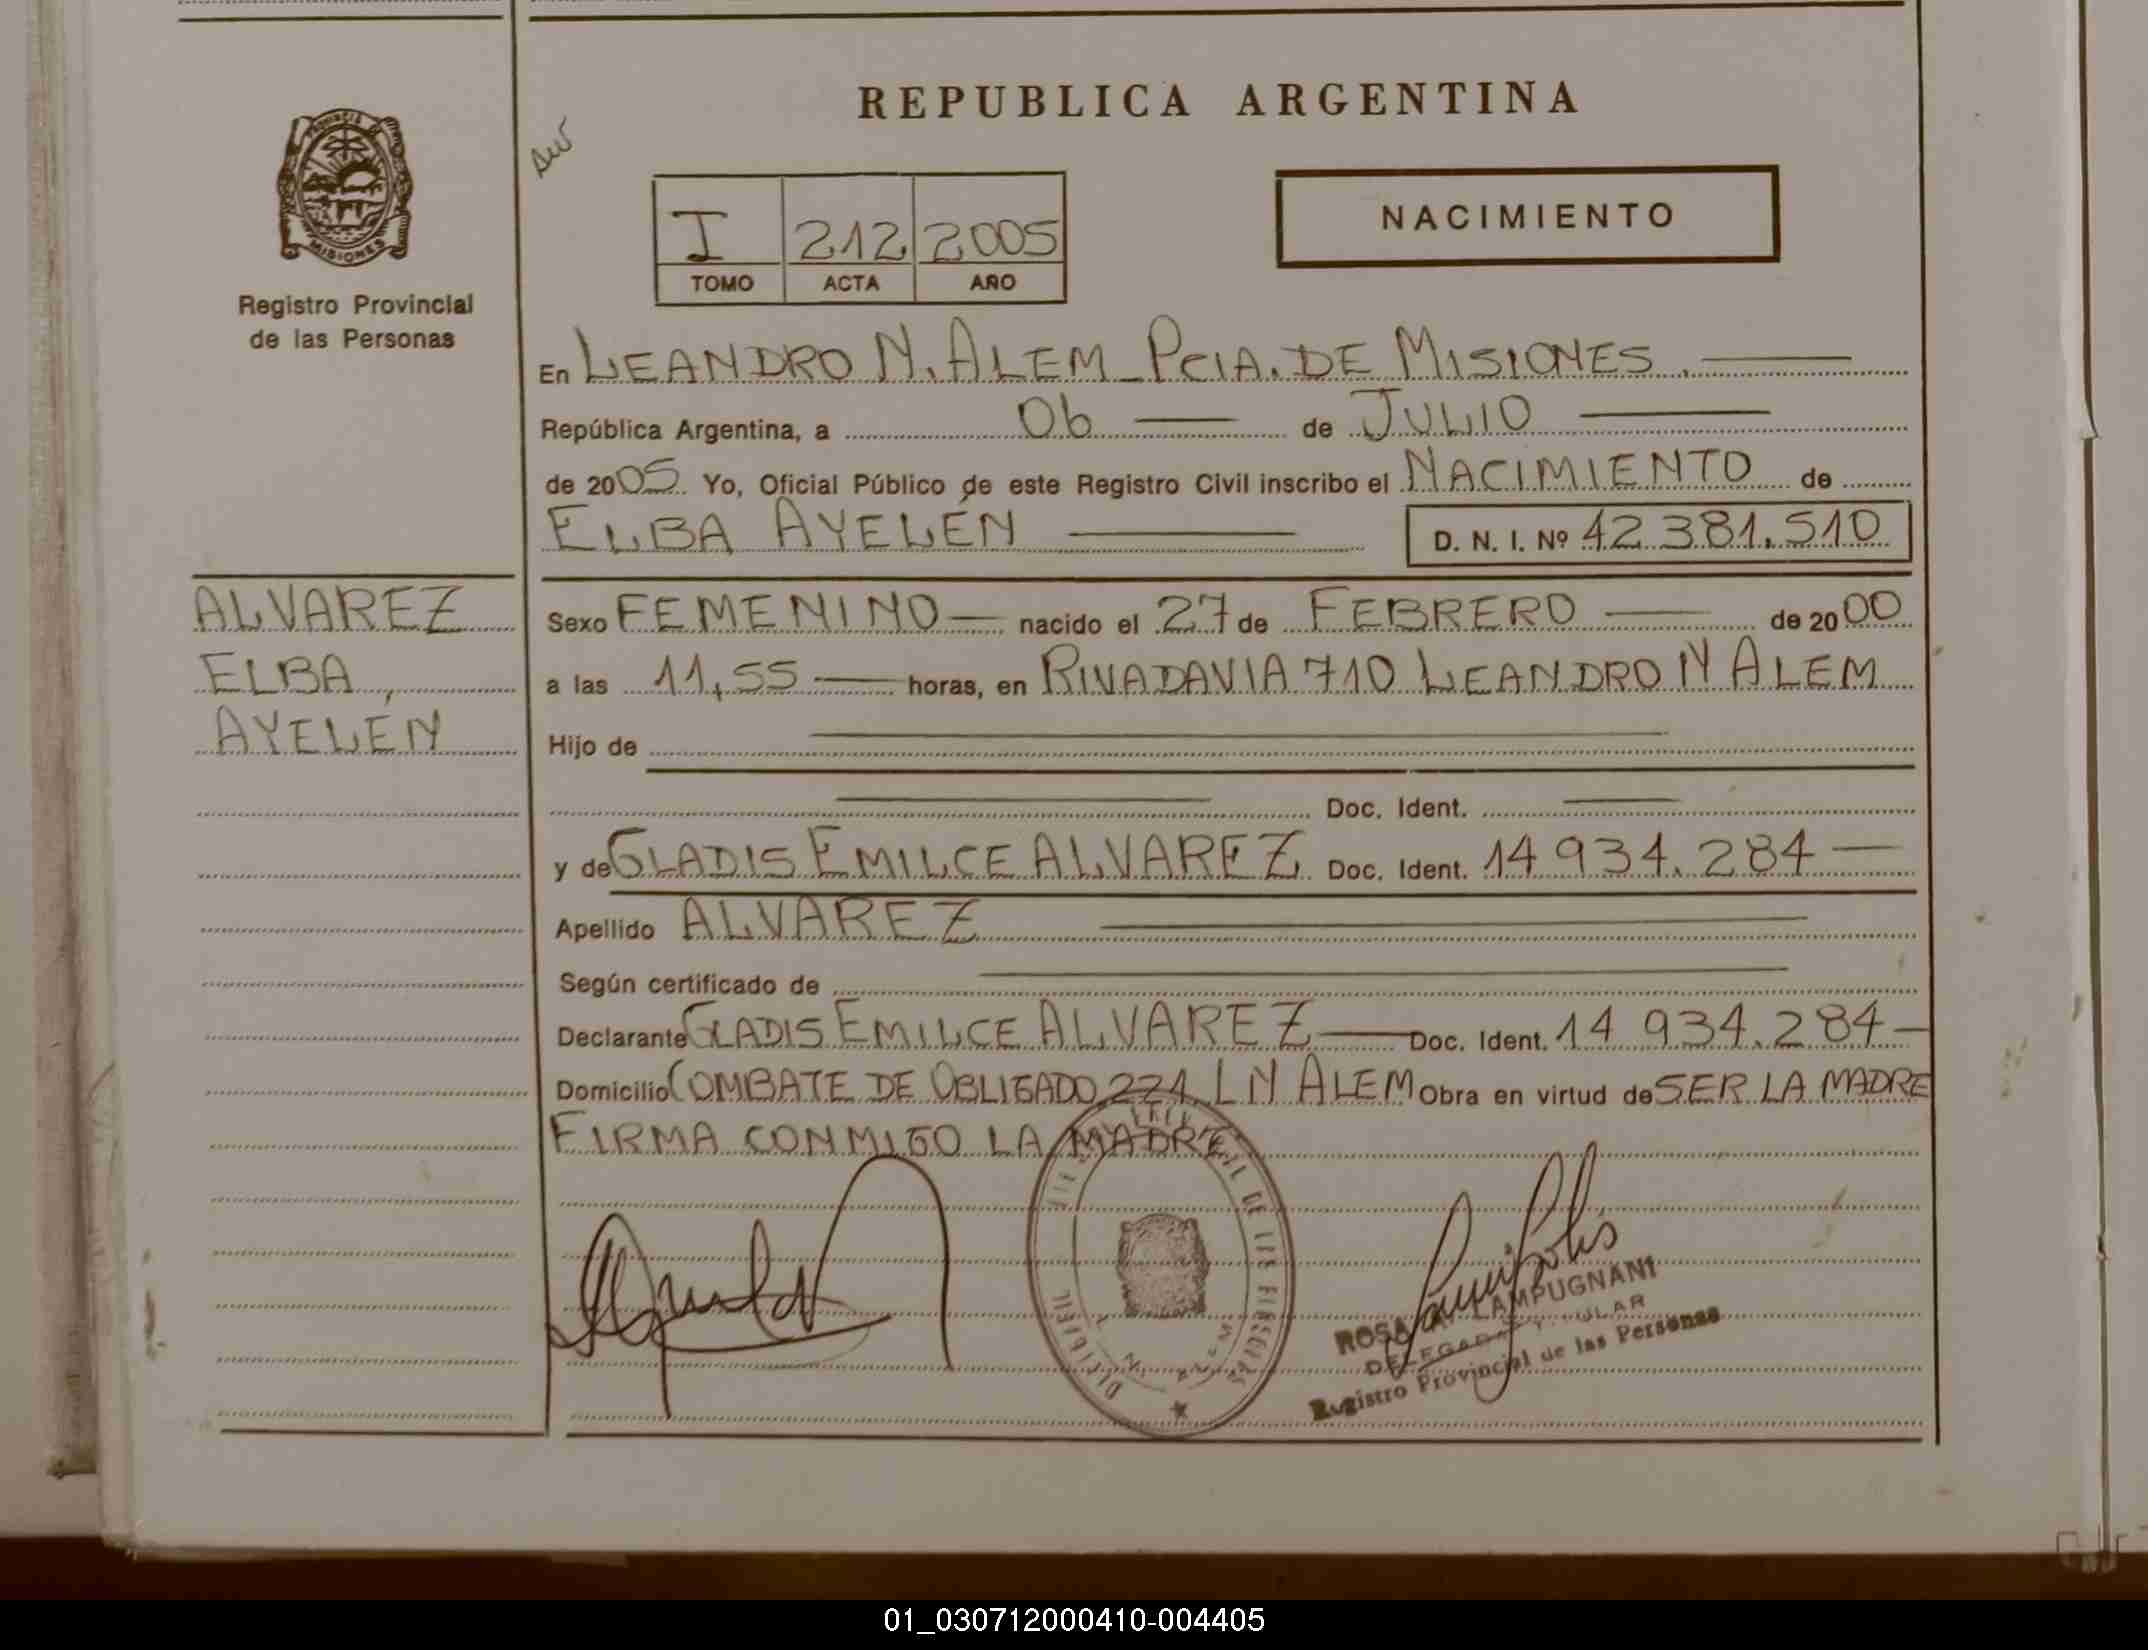 REPUBLICA ARGENTINA
PROVINCIA D
MISIONES
Registro Provincial
de las Personas
I 212 2005
TOMO ACTA AÑO
NACIMIENTO
En LEANDRO N. ALEM - PCIA. DE MISIONES.
República Argentina, a 06 de JULIO
de 2005 Yo, Oficial Público de este Registro Civil inscribo el NACIMIENTO de
ELBA AYELÉN D. N. I. Nº 42.381.510
ALVAREZ
ELBA
AYELÉN
Sexo FEMENINO nacido el 27 de FEBRERO de 2000
a las 11,55 horas, en RIVADAVIA 710 LEANDRO N ALEM
Hijo de
Doc. Ident.
y de GLADIS EMILCE ALVAREZ Doc. Ident. 14.934.284
Apellido ALVAREZ
Según certificado de
Declarante GLADIS EMILCE ALVAREZ Doc. Ident. 14.934.284
Domicilio COMBATE DE OBLIGADO 221 LN ALEM Obra en virtud de SER LA MADRE
FIRMA CONMIGO LA MADRE
ROSA LAMPUGNANI
DELEGADA TITULAR
Registro Provincial de las Personas
01_030712000410-004405